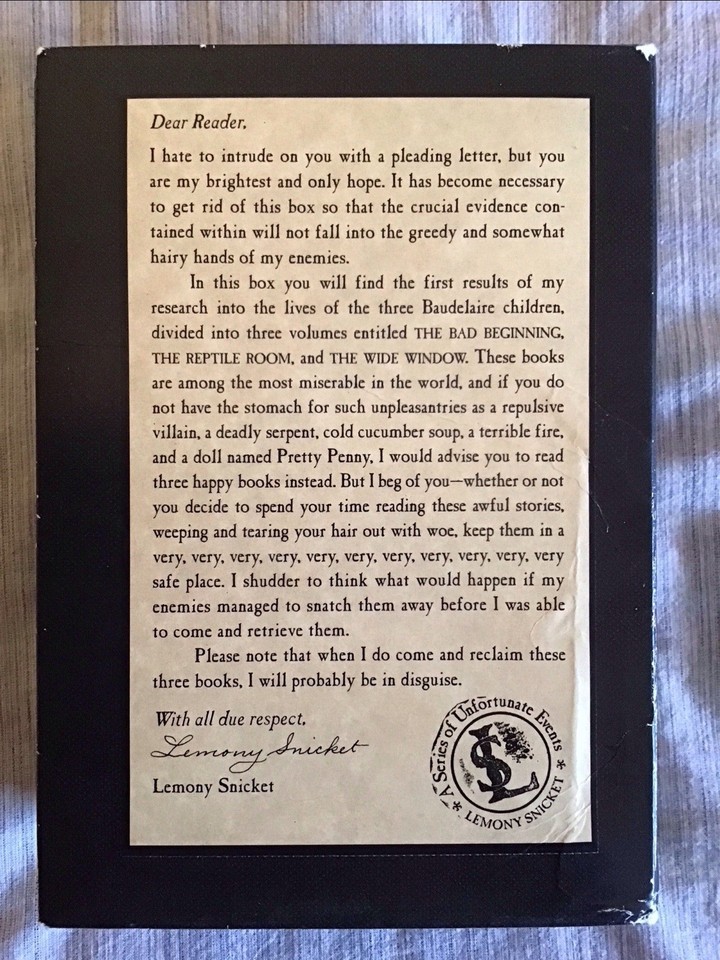 Dear Reader,
I hate to intrude on you with a pleading letter, but you
are my brightest and only hope. It has become necessary
to get rid of this box so that the crucial evidence con-
tained within will not fall into the greedy and somewhat
hairy hands of my enemies.
In this box you will find the first results of my
research into the lives of the three Baudelaire children,
divided into three volumes entitled THE BAD BEGINNING,
THE REPTILE ROOM, and THE WIDE WINDOW. These books
are among the most miserable in the world, and if you do
not have the stomach for such unpleasantries as a repulsive
villain, a deadly serpent, cold cucumber soup, a terrible fire,
and a doll named Pretty Penny, I would advise you to read
three happy books instead. But I beg of you—whether or not
you decide to spend your time reading these awful stories,
weeping and tearing your hair out with woe, keep them in a
very, very, very, very, very, very, very, very, very, very, very
safe place. I shudder to think what would happen if my
enemies managed to snatch them away before I was able
to come and retrieve them.
Please note that when I do come and reclaim these
three books, I will probably be in disguise.
With all due respect,
Lemony Snicket
Lemony Snicket
A Series of Unfortunate Events
LS
* LEMONY SNICKET *